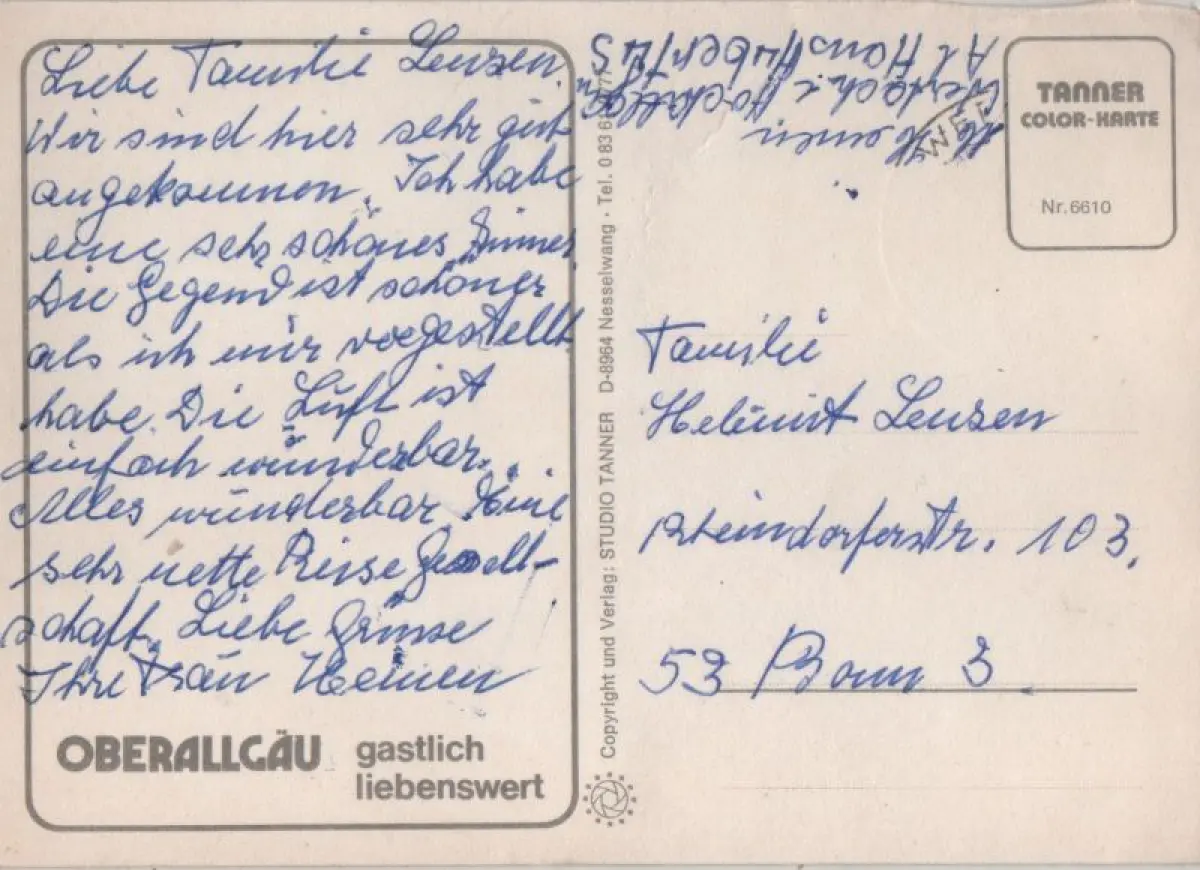 Liebe Familie Lenzen.
Wir sind hier sehr gut
angekommen. Ich habe
eine sehr schönes Zimmer.
Die Gegend ist schöner
als ich mir vorgestellt
habe. Die Luft ist
einfach wunderbar.
Alles wunderbar. Eine
sehr nette Reise Gesell-
schaft. Liebe Grüsse
Ihre Frau Heinen
OBERALLGÄU gastlich
liebenswert
Copyright und Verlag: STUDIO TANNER D-8964 Nesselwang · Tel. 0 83 6
A. Heinen
Wertach
At Haus Hubertus
TANNER
COLOR-KARTE
Nr. 6610
Familie
Helmut Lenzen
Rheindorferstr. 103.
53 Bonn 3